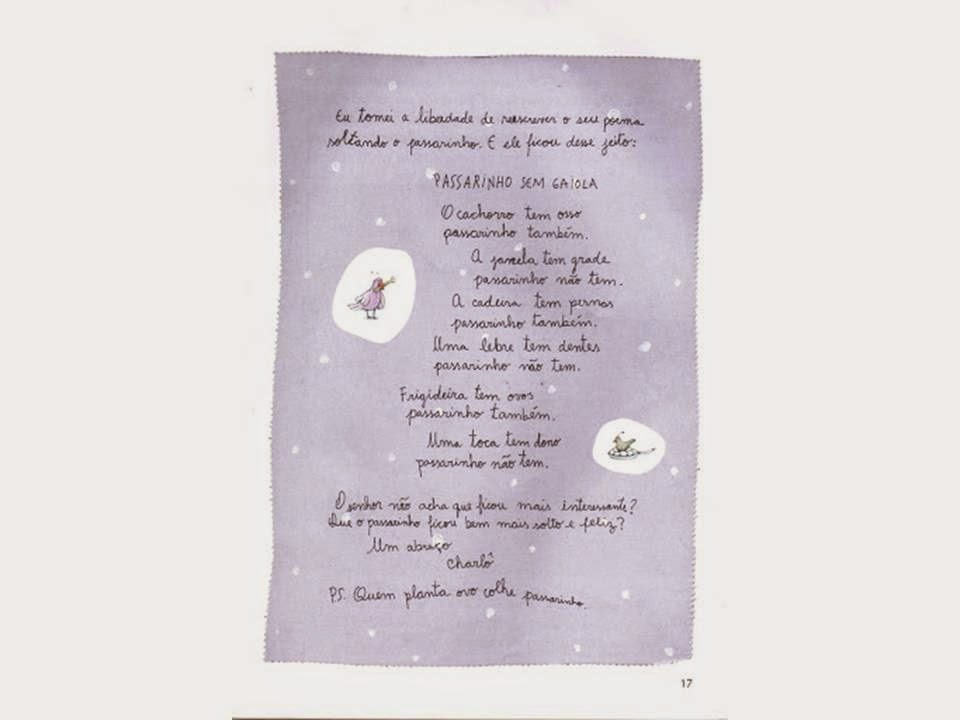 Eu tomei a liberdade de reescrever o seu poema
soltando o passarinho. E ele ficou desse jeito:
PASSARINHO SEM GAIOLA
O cachorro tem osso
passarinho também.
A janela tem grade
passarinho não tem.
A cadeira tem pernas
passarinho também.
Uma lebre tem dentes
passarinho não tem.
Frigideira tem ovos
passarinho também.
Uma toca tem dono
passarinho não tem.
O senhor não acha que ficou mais interessante?
Que o passarinho ficou bem mais solto e feliz?
Um abraço
Charlô
PS. Quem planta ovo colhe passarinho.
17